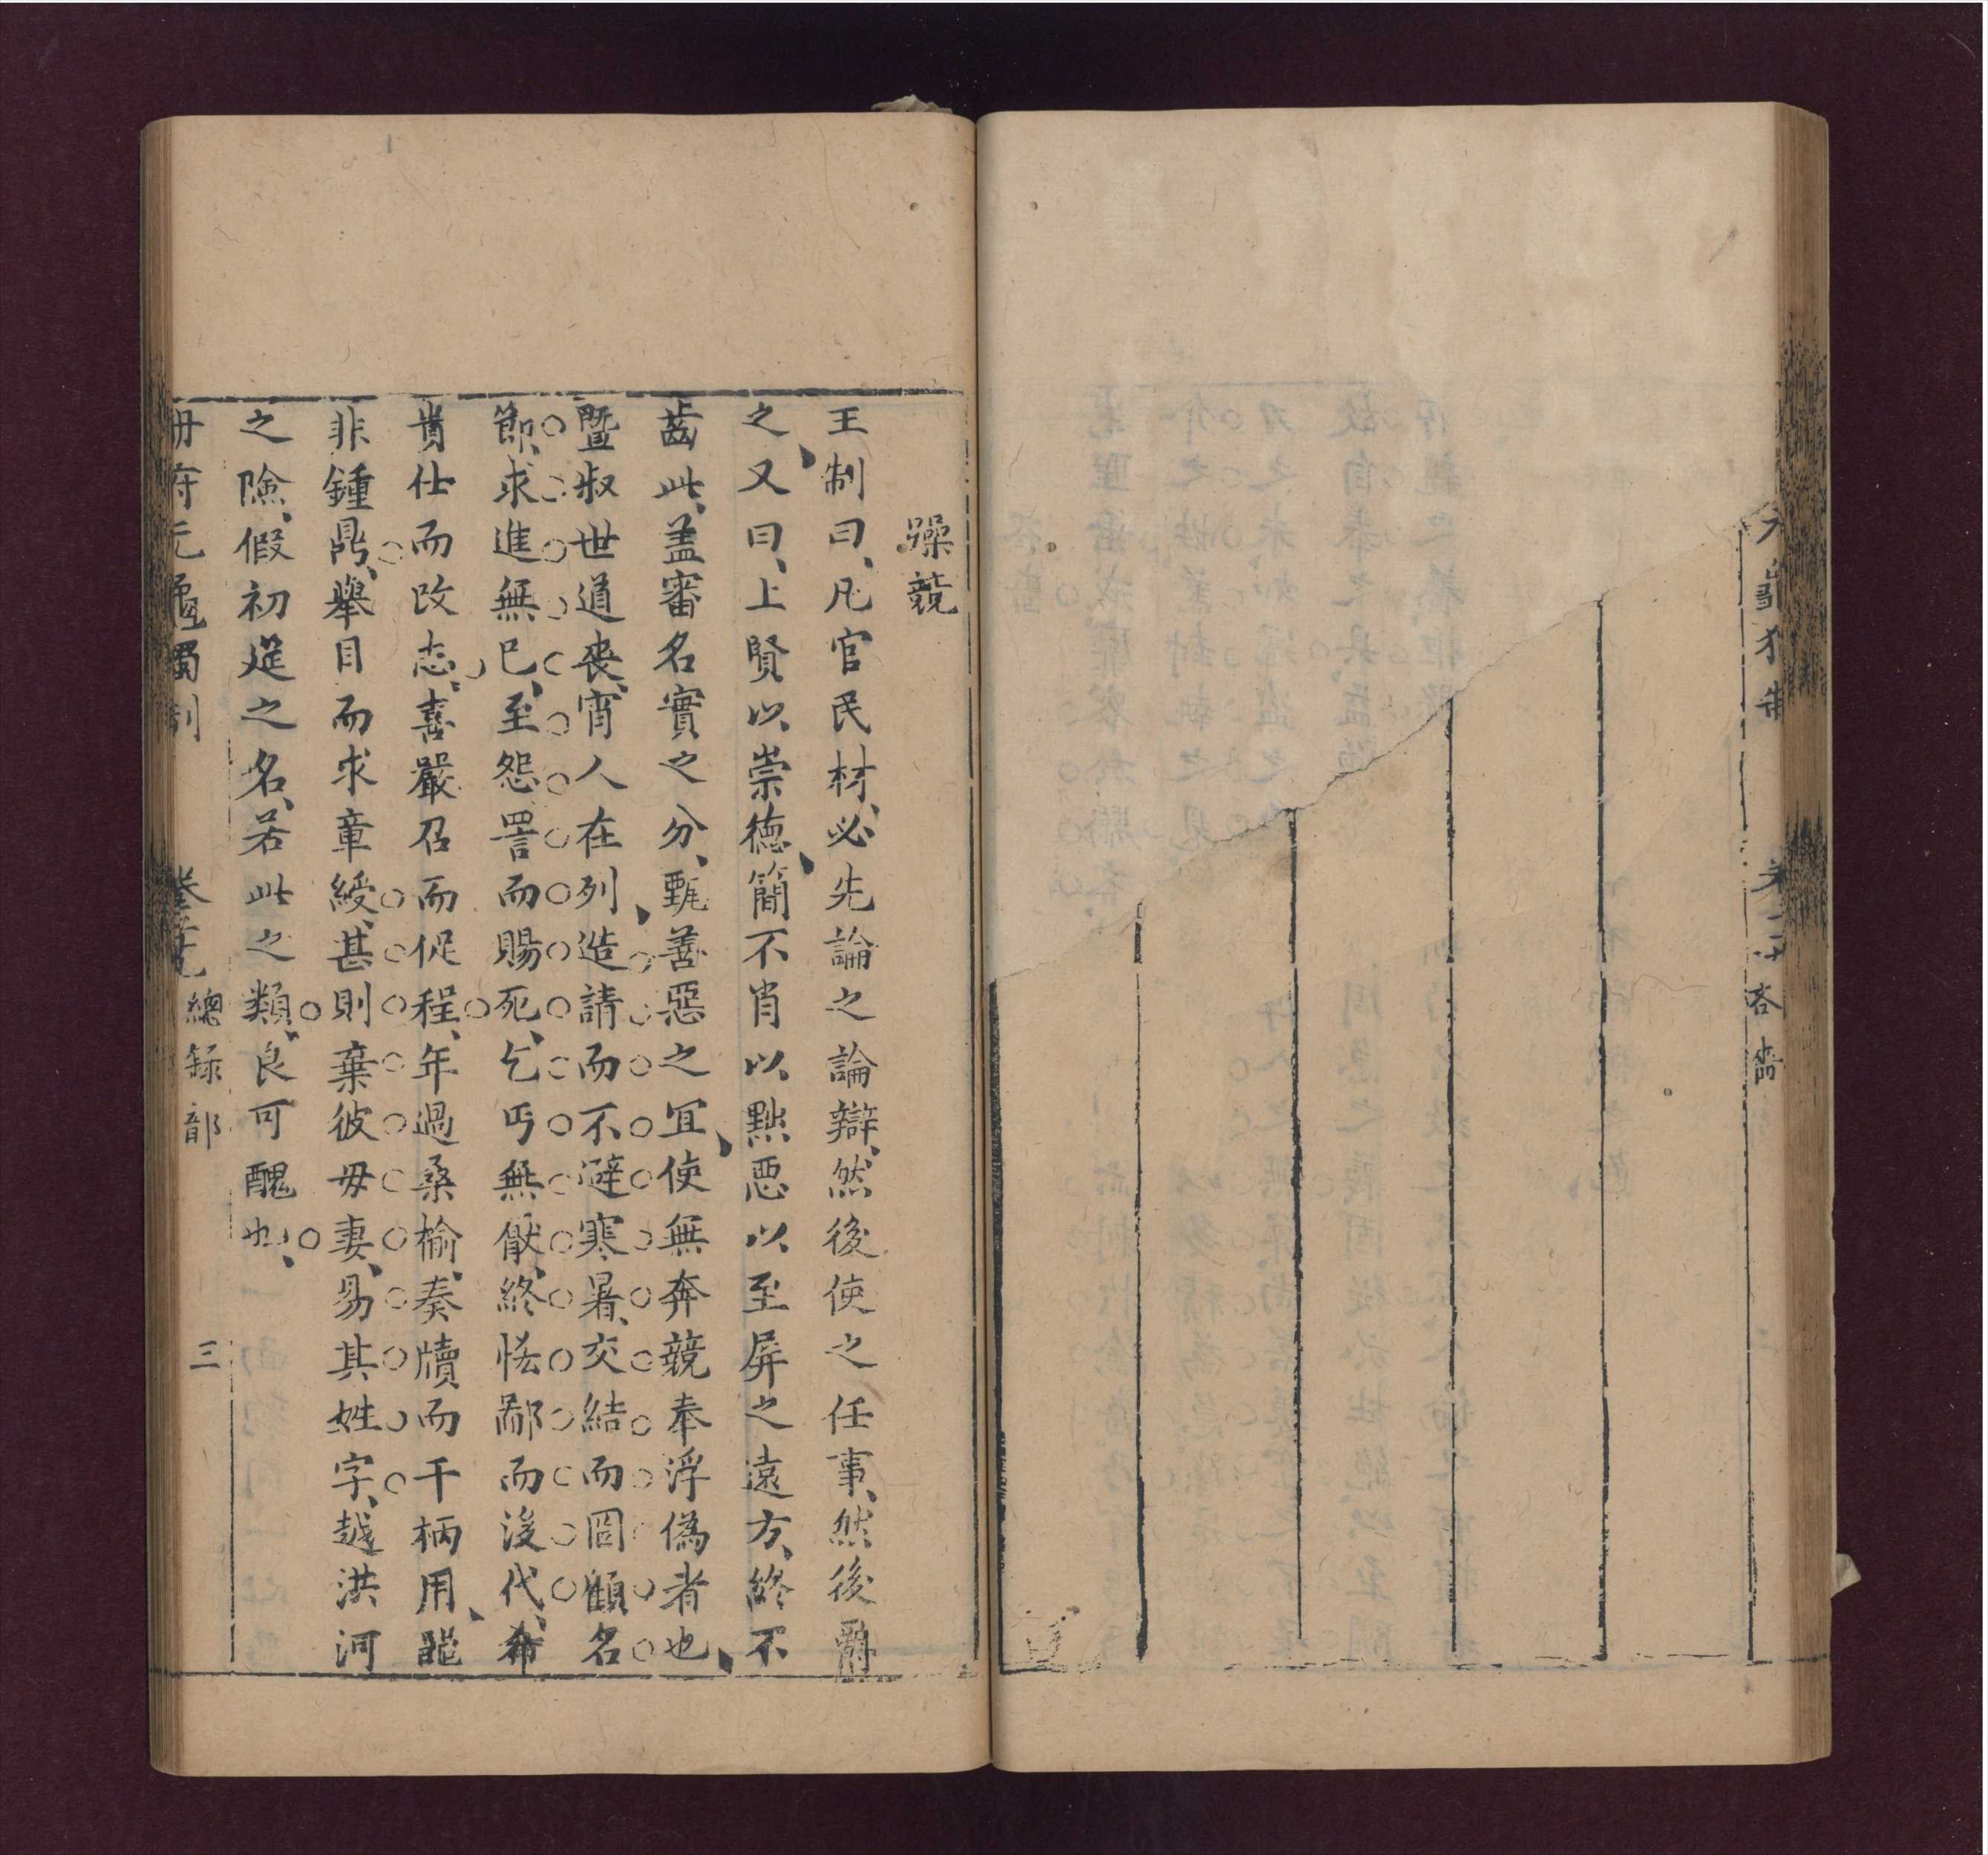 龜獨制
吝嗇
躁競
王制曰、凡官民材、必先論之論辯、然後使之任事、然後爵
之又曰、上賢以崇德、簡不肖以黜惡以至屏之遠方、終不
齒此、蓋審名實之分、甄善惡之宜、使無奔競奉浮偽者也、
暨叔世道喪、宵人在列、造請而不避寒暑、交結而罔顧名
節、求進無已、至怨詈而賜死、乞丐無猒、終恡鄙而後代、希
貴仕而改志、喜嚴召而促程、年過桑榆、奏牘而干柄用、
非鍾鼎、舉目而求章綬、甚則棄彼毋妻、易其姓字、越洪河
之險、假初筵之名、若此之類、良可醜也、
冊府元龜獨制
總録部
三